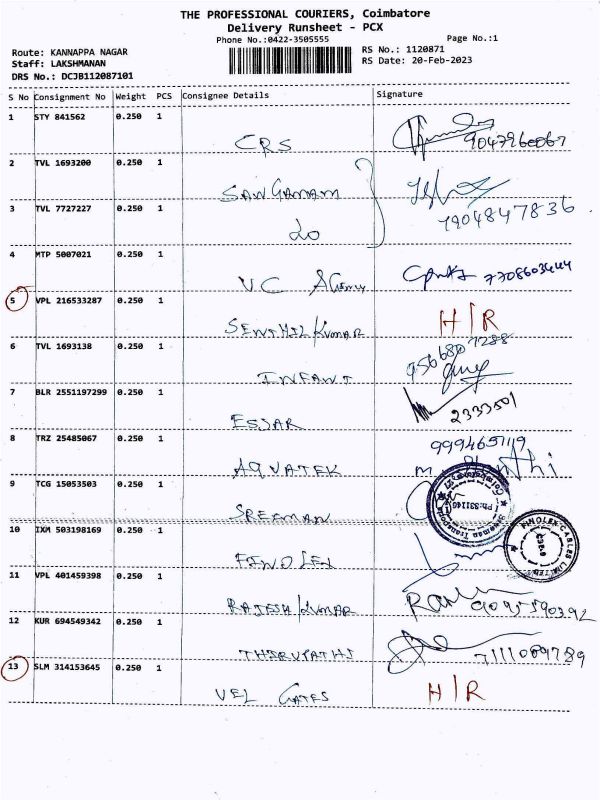 THE PROFESSIONAL COURIERS, Coimbatore
Delivery Runsheet - PCX
Phone No.:0422-3505555
Page No.:1
Route: KANNAPPA NAGAR
Staff: LAKSHMANAN
DRS No.: DCJB112087101
RS No.: 1120871
RS Date: 20-Feb-2023
S No Consignment No Weight PCS Consignee Details Signature
1 STY 841562 0.250 1
CRS
2 TVL 1693200 0.250 1
SANGAMAM
3 TVL 7727227 0.250 1
7904847836
do
4 MTP 5007021 0.250 1
VC 7708603444
5 VPL 216533287 0.250 1
SENTHIL KUMAR H/R
6 TVL 1693138 0.250 1
INFANT
7 BLR 2551197299 0.250 1
2333501
ESSAR
8 TRZ 25485067 0.250 1
AQVATEK
9 TCG 15053503 0.250 1
SREEMAN
10 IXM 503198169 0.250 1
FINOLEX
FINOLEX CABLES LIMITED
11 VPL 401459398 0.250 1
RAJESH KUMAR
12 KUR 694549342 0.250 1
THIRUPATHI
13 SLM 314153645 0.250 1
VEL GATES H/R